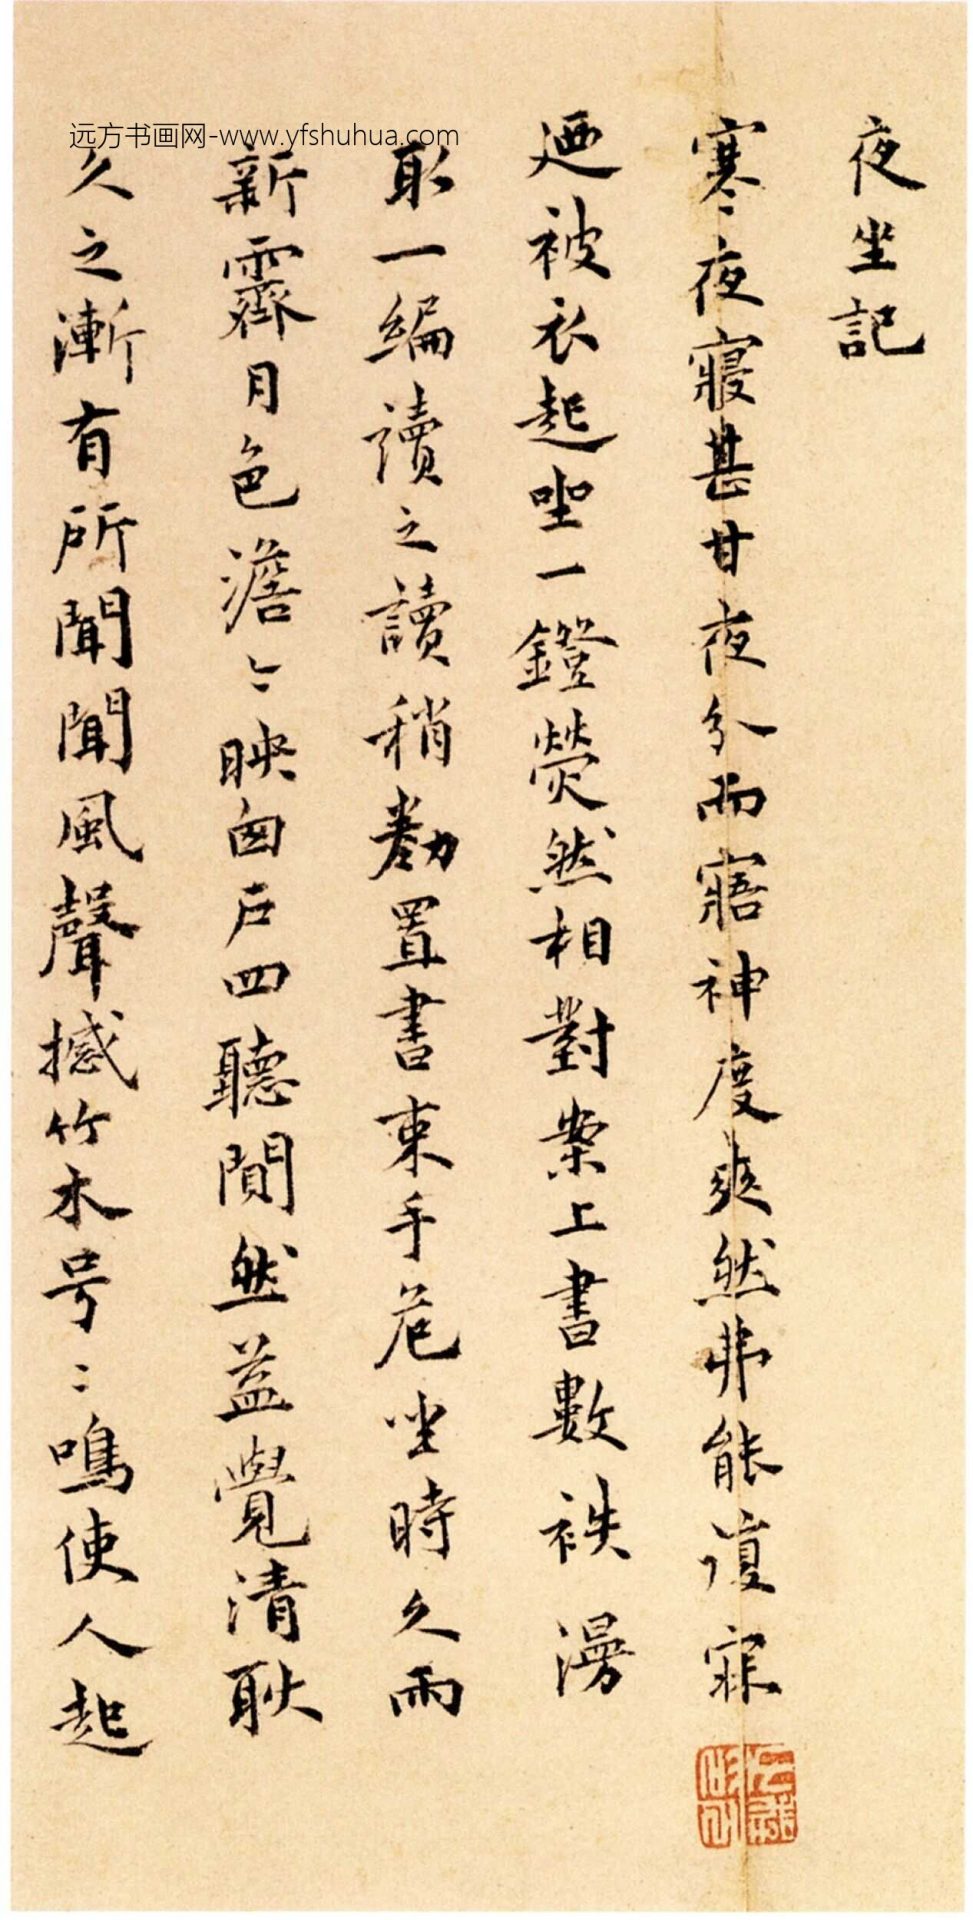 远方书画网-www.yfshuhua.com
夜坐記
寒夜寢甚甘夜分而寤神度爽然弗能復寐
廼被衣起坐一鐙熒然相對案上書數袟漫
取一編讀之讀稍勌置書束手危坐時久雨
新霽月色澹々映囱戶四聽閴然益覺清耿
久之漸有所聞聞風聲撼竹木号々鳴使人起